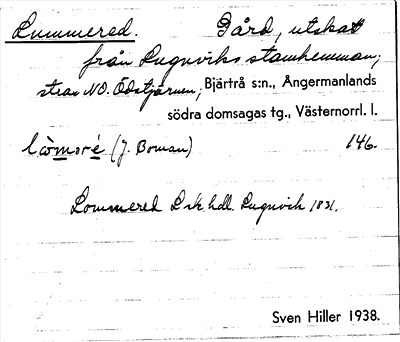 Lummered. Gård, utskat
från Lugnviks stamhemman;
strax NO. Ödstjärnen; Bjärtrå s:n., Ångermanlands
södra domsagas tg., Västernorrl. l.
(J. Boman) 146.
Lommered Lsk hdl. Lugnvik 1831.
Sven Hiller 1938.